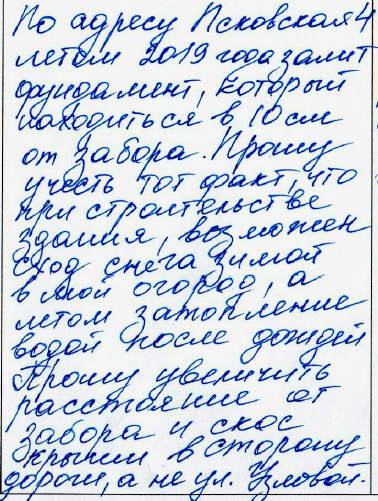 По адресу Псковская 4
летом 2019 года залит
фундамент, который
находиться в 10 см
от забора. Прошу
учесть тот факт, что
при строительстве
здания, возможен
сход снега зимой
в мой огород, а
летом затопление
водой после дождей
Прошу увеличить
расстояние от
забора и скос
крыши в сторону
дороги, а не ул. Узловой.